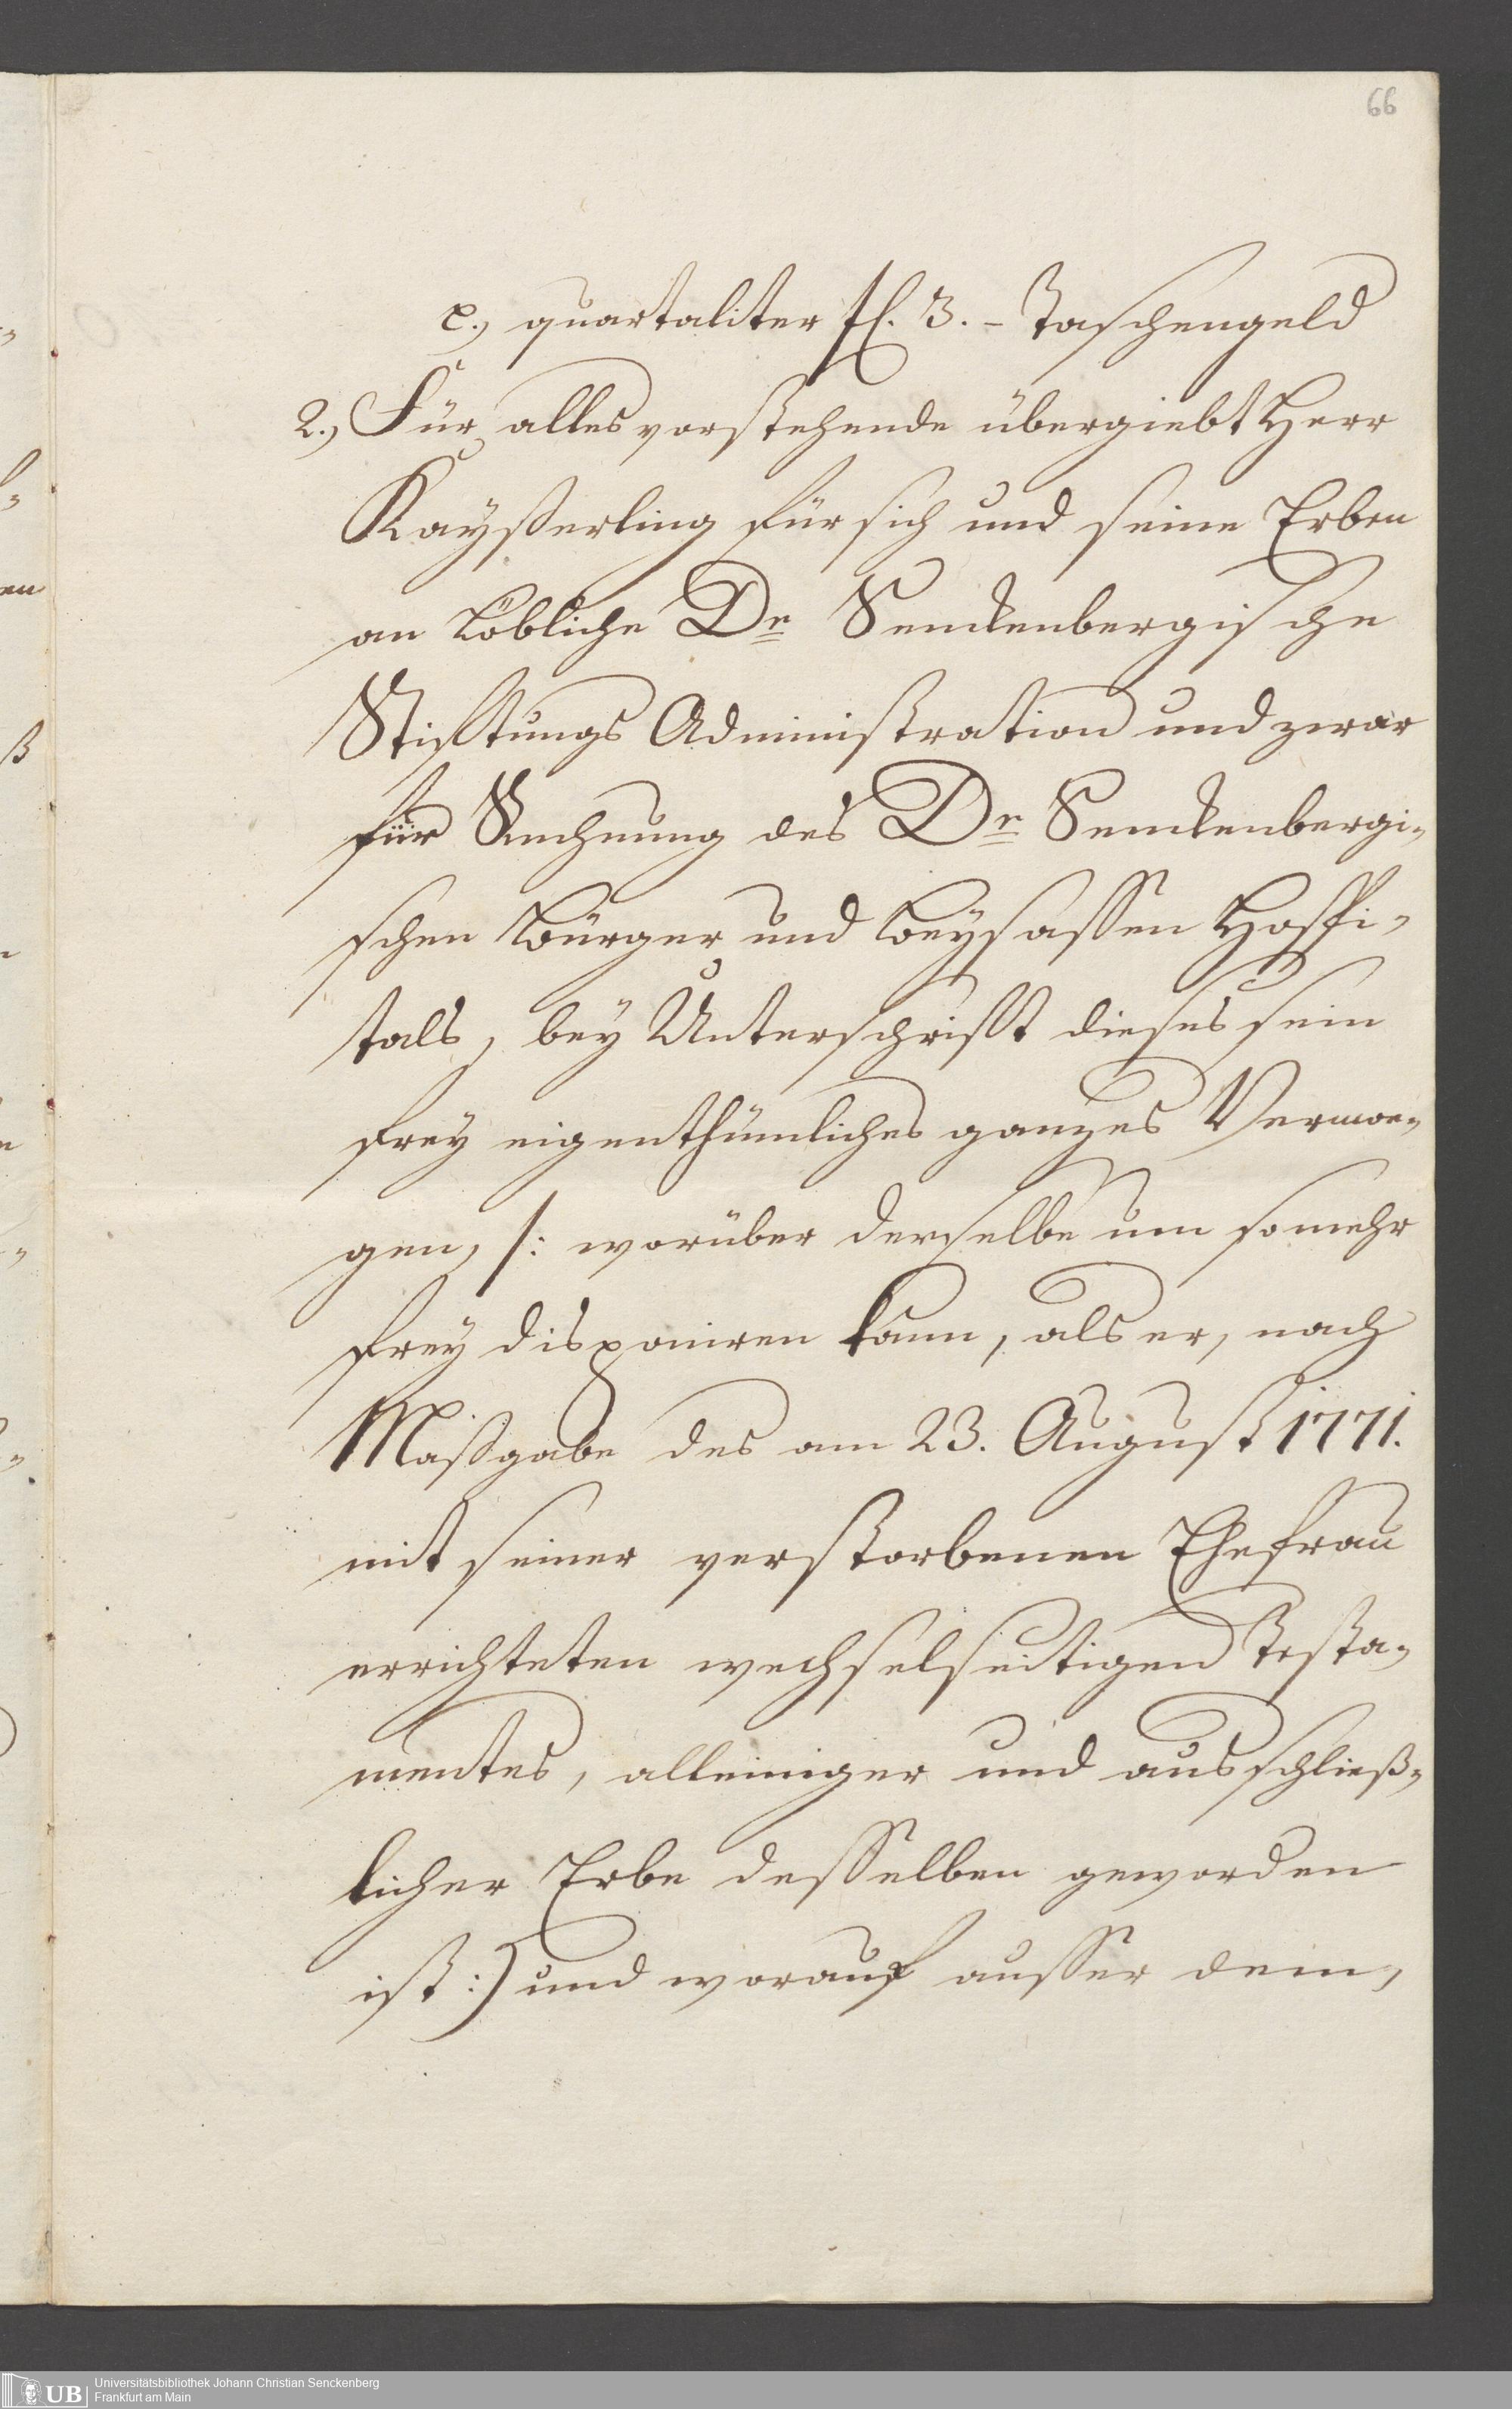 66
e., quartaliter fl. 3. – Taschengeld
2., Für alles vorstehende übergiebt Herr
Kayßerling für sich und seine Erben
an Löbliche Dr Senckenbergische
Stiftungs Administration und zwar
für Rechnung des Dr Senckenbergi-
schen Bürger und Beysassen Hospi-
tals, bey Unterschrifft dieses sein
frey eigenthümliches ganzes Vermoe-
gen, /: worüber derselbe um so mehr
frey disponiren kann, als er, nach
Maßgabe des am 23. August 1771.
mit seiner verstorbenen Ehefrau
errichteten wechselseitigen Testa-
mentes, alleiniger und ausschließ-
licher Erbe desselben geworden
ist :) und worauf ausser dem,
UB
Universitätsbibliothek Johann Christian Senckenberg
Frankfurt am Main